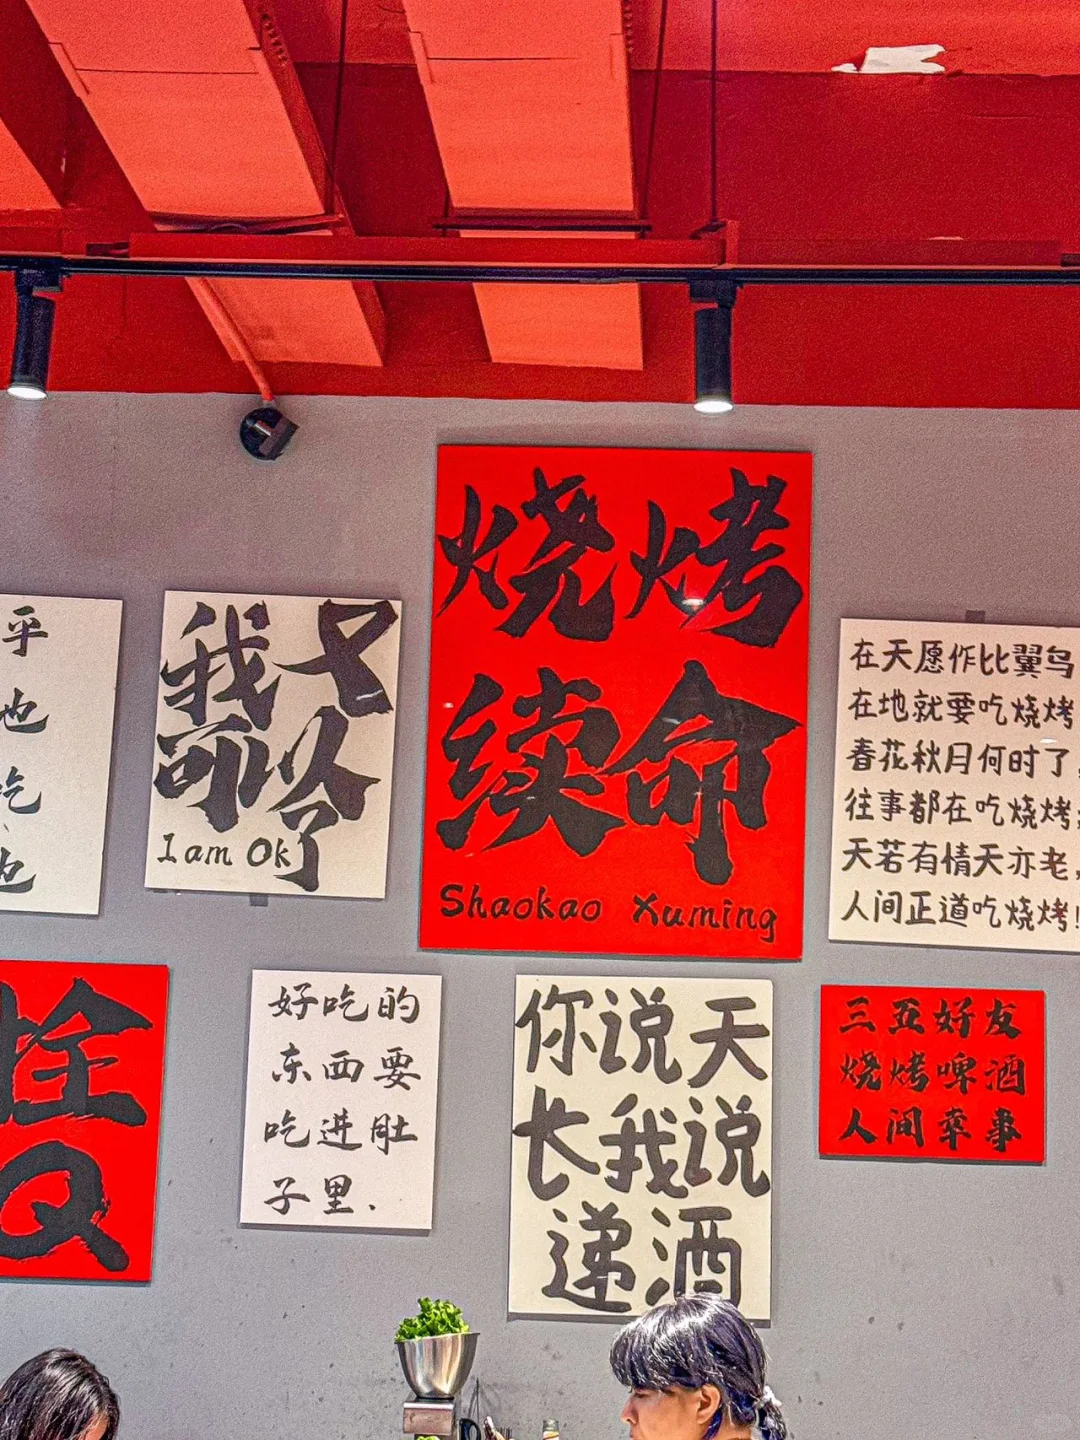 乎
也
吃
也
我又
可以
了
I am Ok
烧烤
续命
Shaokao Xuming
在天愿作比翼鸟
在地就要吃烧烤
春花秋月何时了,
往事都在吃烧烤
天若有情天亦老,
人间正道吃烧烤!
拴
Q
好吃的
东西要
吃进肚
子里.
你说天
长我说
递酒
三五好友
烧烤啤酒
人间幸事